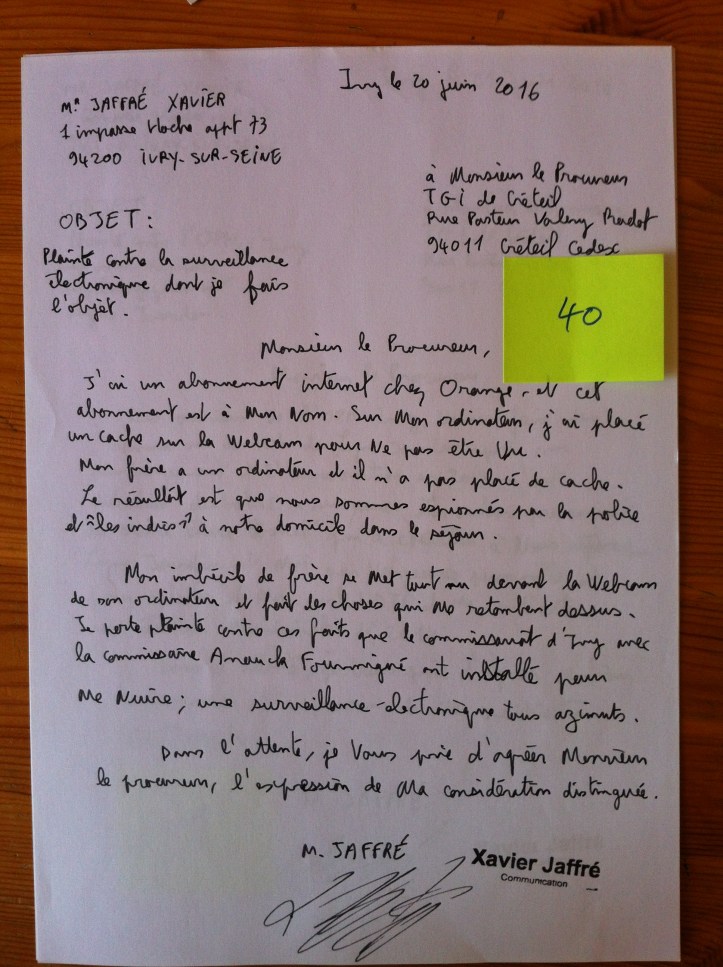 Ivry le 20 juin 2016
Mr JAFFRÉ XAVIER
1 impasse Hoche appt 73
94200 IVRY-SUR-SEINE
à Monsieur le Procureur
TGI de Créteil
Rue Pasteur Valery Radot
94011 Créteil Cedex
OBJET :
Plainte contre la surveillance
électronique dont je fais
l'objet.
40
Monsieur le Procureur,
J'ai un abonnement internet chez Orange, et cet
abonnement est à mon Nom. Sur Mon ordinateur, j'ai placé
un cache sur la Webcam pour Ne pas être Vu.
Mon frère a un ordinateur et il n'a pas placé de cache.
Le résultat est que nous sommes espionnés par la police
et "les indics" à notre domicile dans le séjour.
Mon imbécile de frère se Met tout nu devant la Webcam
de son ordinateur et fait des choses qui Me retombent dessus.
Je porte plainte contre ces faits que le commissariat d'Ivry avec
la commissaire Fourmigué ont installé pour
Me Nuire ; une surveillance électronique tous azimuts.
Dans l'attente, je Vous prie d'agréer Monsieur
le procureur, l'expression de Ma considération distinguée.
M. JAFFRÉ
Xavier Jaffré
Communication